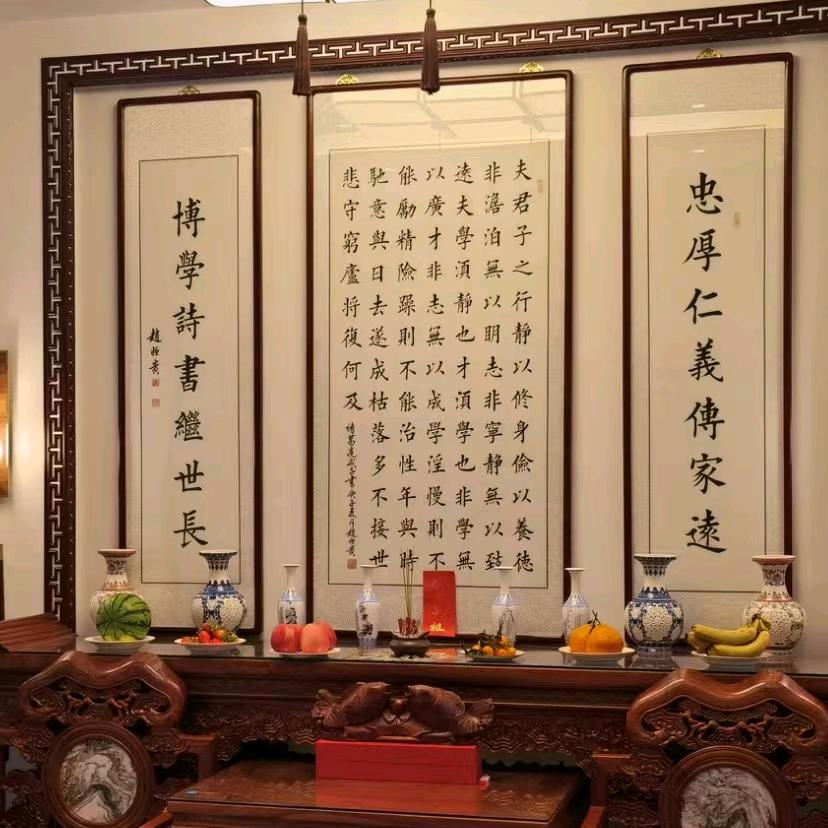 忠厚仁義傳家遠
夫君子之行靜以修身儉以養德
非澹泊無以明志非寧靜無以致
遠夫學須靜也才須學也非學無
以廣才非志無以成學淫慢則不
能勵精險躁則不能治性年與時
馳意與日去遂成枯落多不接世
悲守窮廬將復何及
諸葛亮誡子書庚子夏月趙恒貴
博學詩書繼世長
趙恒貴
祖